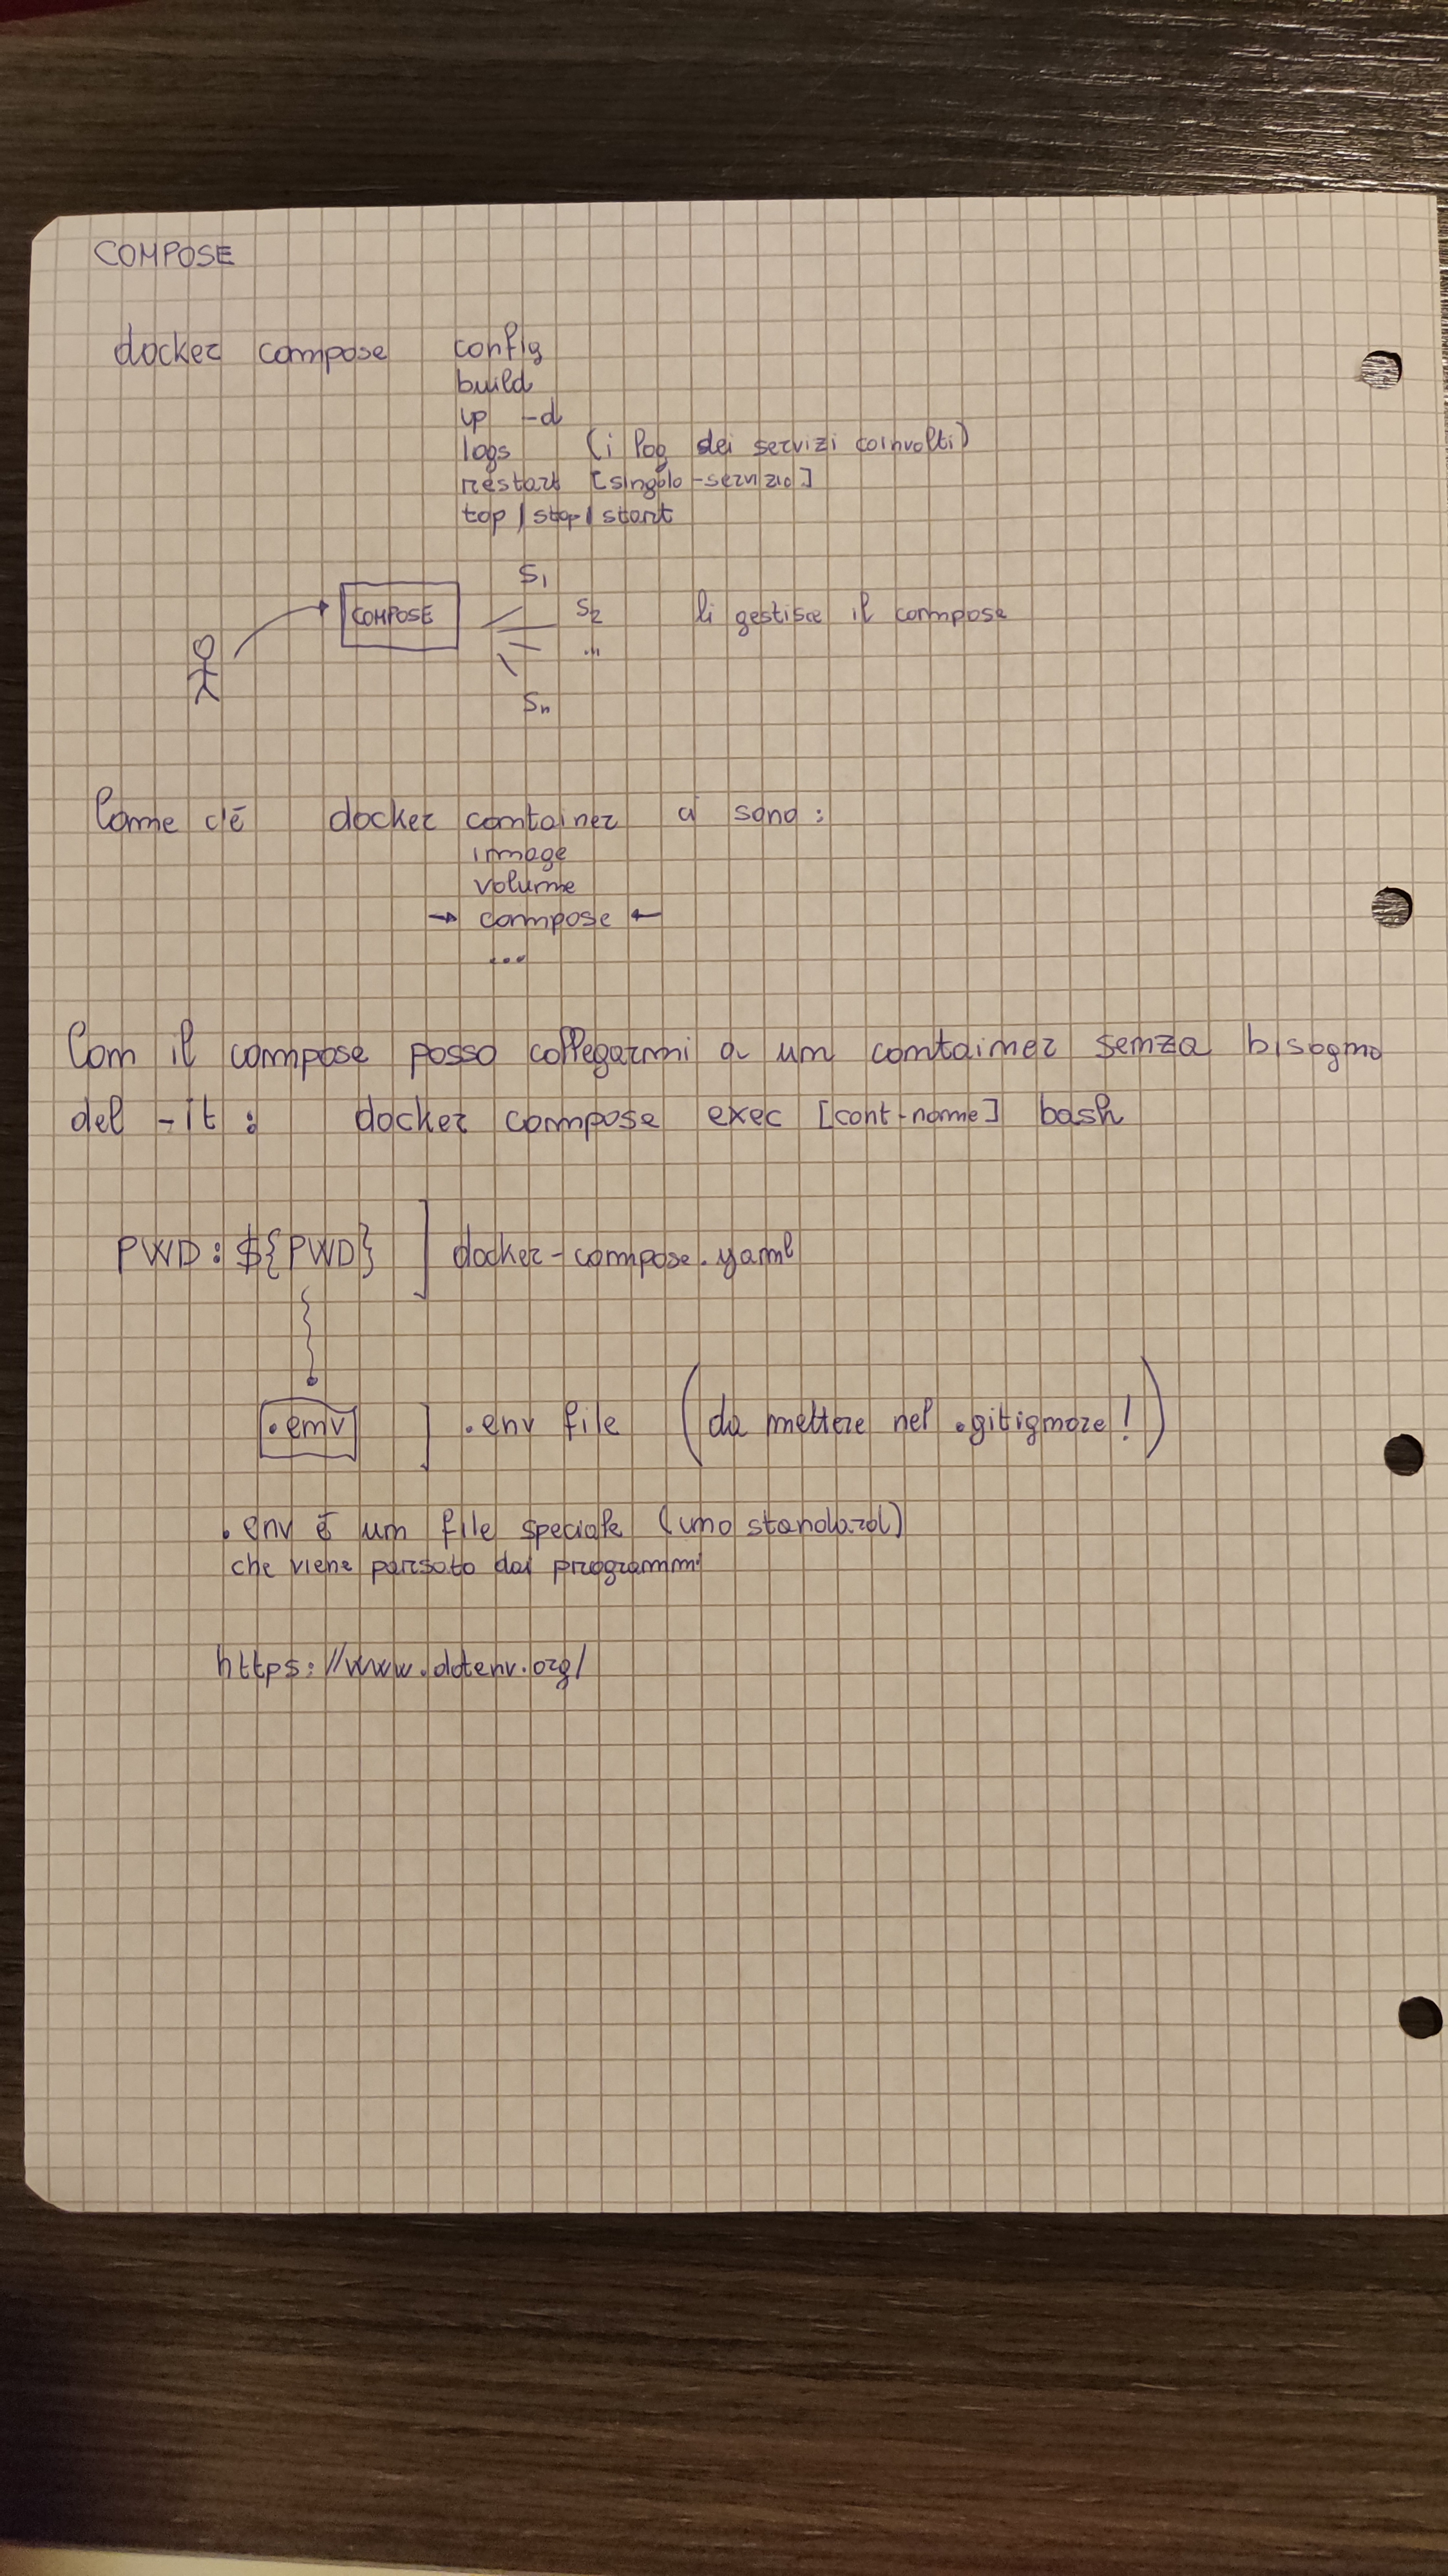 COMPOSE
docker compose config
build
up -d
logs (i log dei servizi coinvolti)
restart [singolo-servizio]
top / stop / start
S1
COMPOSE S2 li gestisce il compose
...
Sn
Come c'è docker container ci sono:
image
volume
→ compose ←
...
Con il compose posso collegarmi a un container senza bisogno
del -it : docker compose exec [cont-name] bash
PWD: ${PWD} ] docker-compose.yaml
.env ] .env file (da mettere nel .gitignore!)
.env è un file speciale (uno standard)
che viene parsato dai programmi
https://www.dotenv.org/